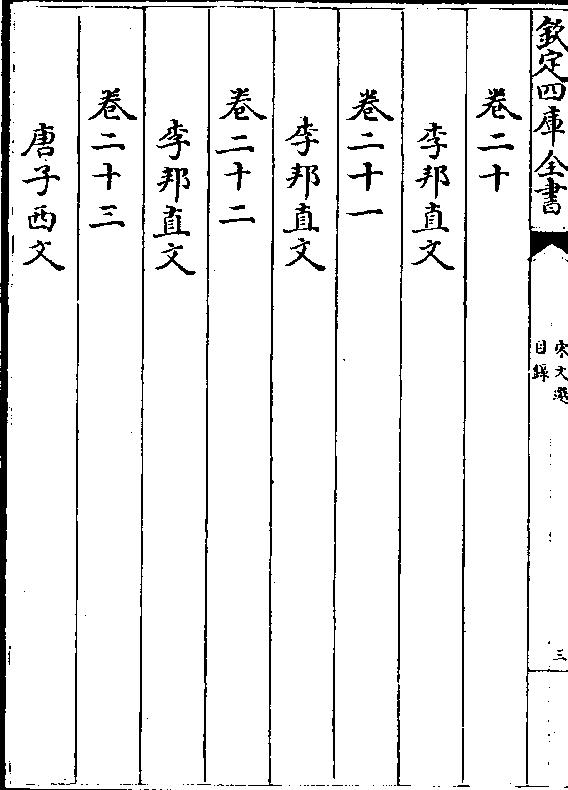 欽定四庫全書
宋文選
目錄
三
卷二十
李邦直文
卷二十一
李邦直文
卷二十二
李邦直文
卷二十三
唐子西文